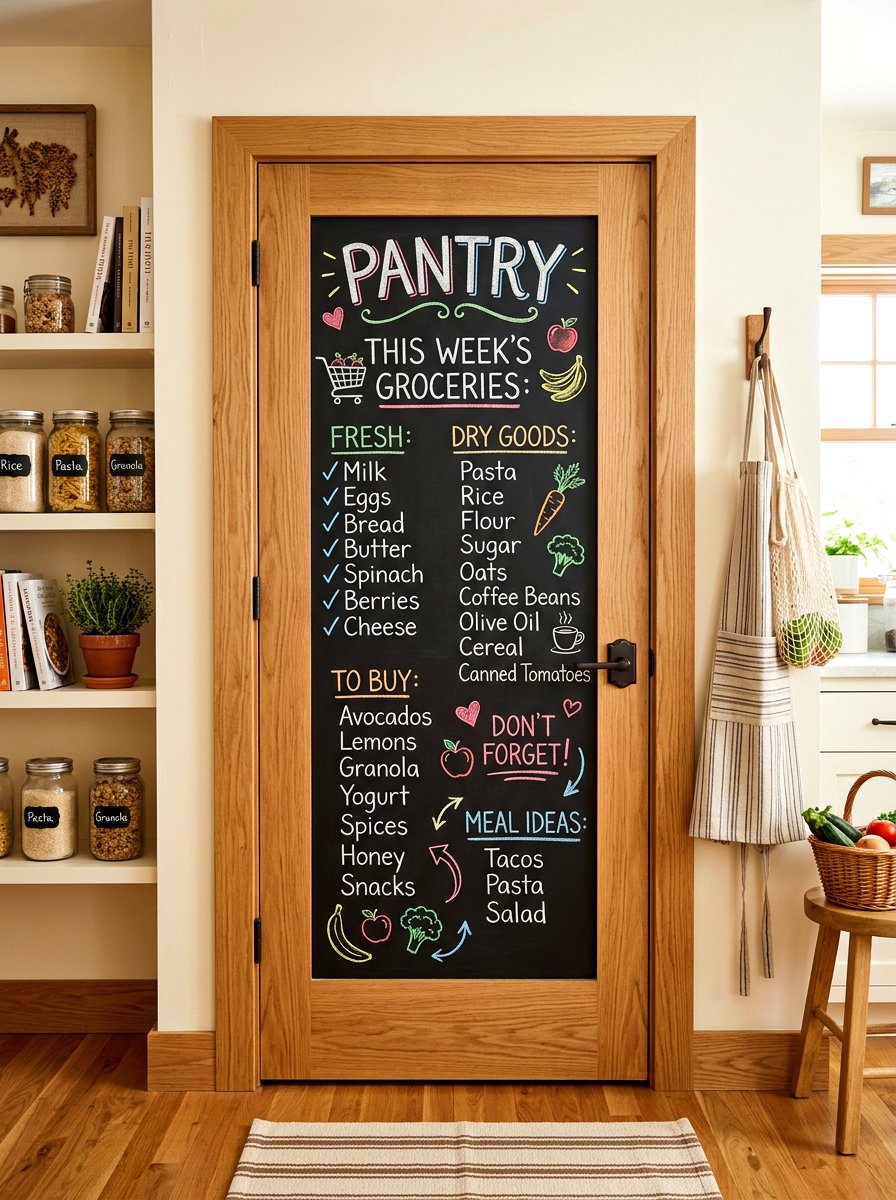 PANTRY
THIS WEEK'S
GROCERIES:
FRESH:
✓ Milk
✓ Eggs
✓ Bread
✓ Butter
✓ Spinach
✓ Berries
✓ Cheese
DRY GOODS:
Pasta
Rice
Flour
Sugar
Oats
Coffee Beans
Olive Oil
Cereal
Canned Tomatoes
TO BUY:
Avocados
Lemons
Granola
Yogurt
Spices
Honey
Snacks
DON'T
FORGET!
MEAL IDEAS:
Tacos
Pasta
Salad
Rice
Pasta
Granola